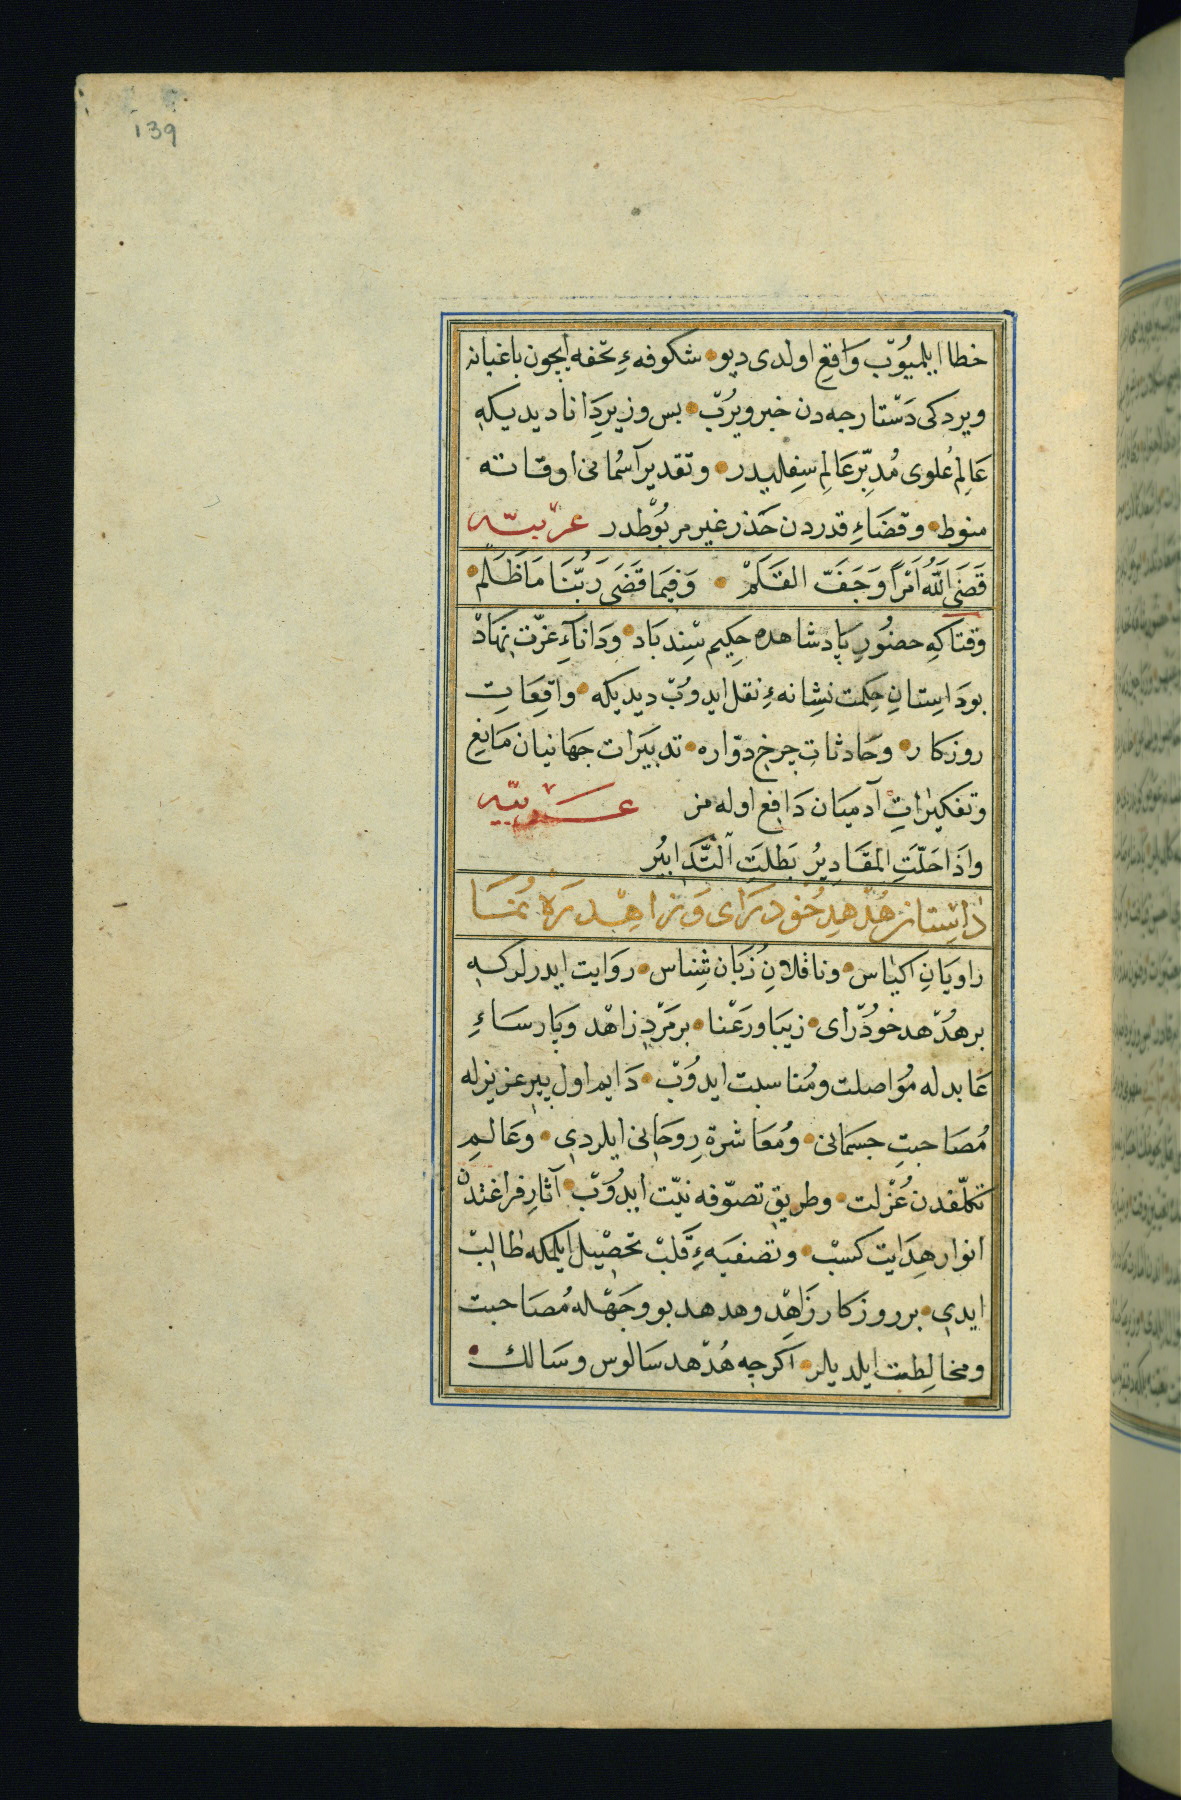 139
خطا ایلمیوب واقع اولدی دیو شکوفهءِ تحفه ایچون باغبانه
ویردکی دستارجه دن خبر ویرُبّ بس وزیرِ دانا دیدیکه
عالمِ عُلوی مُدبّرِ عالمِ سفلیدر وتقدیر آسمانی اوقاته
منوط وقضاءِ قدردن حَذر غیر مربوُطدر عربیّه
قَضَى اللّٰهُ اَمْراً وَجَفَّ القَلَمْ وَفِیمَا قَضَى رَبُّنَا مَا ظَلَمْ
وقتاکه حضُورِ پادشاهده حکیم سِندباد ودانآءِ عزّت نهادْ
بو داستانِ حکمت نشانهءِ نقل ایدوُبّ دیدیکه واقعاتِ
روزکار وحادثاتِ چرخِ دوّاره تدبیرات جهانیان مانع
وتفکیراتِ آدمیان دافع اوله مز عربیّه
واذَا حَلّتِ المَقَادِیرُ بَطلَتِ التَّدَابیُر
داستان هُدْهدِ خوُدرَای وَزاهْد رَه نُمَا
راویانِ اکیاس وناقلانِ زبان شناس روایت ایدرلرکه
بر هُدْهد خودْرای زیبا ورَعْنا بر مَرْدِ زاهْد وپارساءِ
عابدله مُواصلت ومُناسبت ایدوُبّ دایم اول پیرِ عزیزله
مُصَاحبتِ جسمانی ومُعَاشرةِ روحانی ایلردی وعالمِ
تکلّفدن عُزْلت وطریقِ تصوّفه نیّت ایدوُبّ آثارِ فراغتدن
انوار هِدَایت کسبْ وتصفیهءِ قَلبْ تحصْیل ایلمکه طالبْ
ایدی بر روزکار زَاهِد وهدهد بو وجَهْله مُصَاحبت
ومخالِطت ایلدیلر اکرچه هُدْهد سَالوس وسَالك